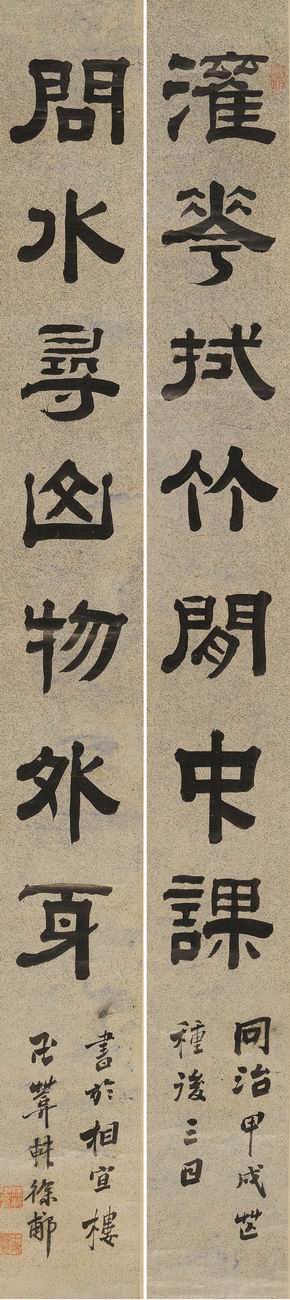 灌花拭竹閒中課
同治甲戌芒
種後三日
問水尋山物外身
書於相宜樓
葊徐郙